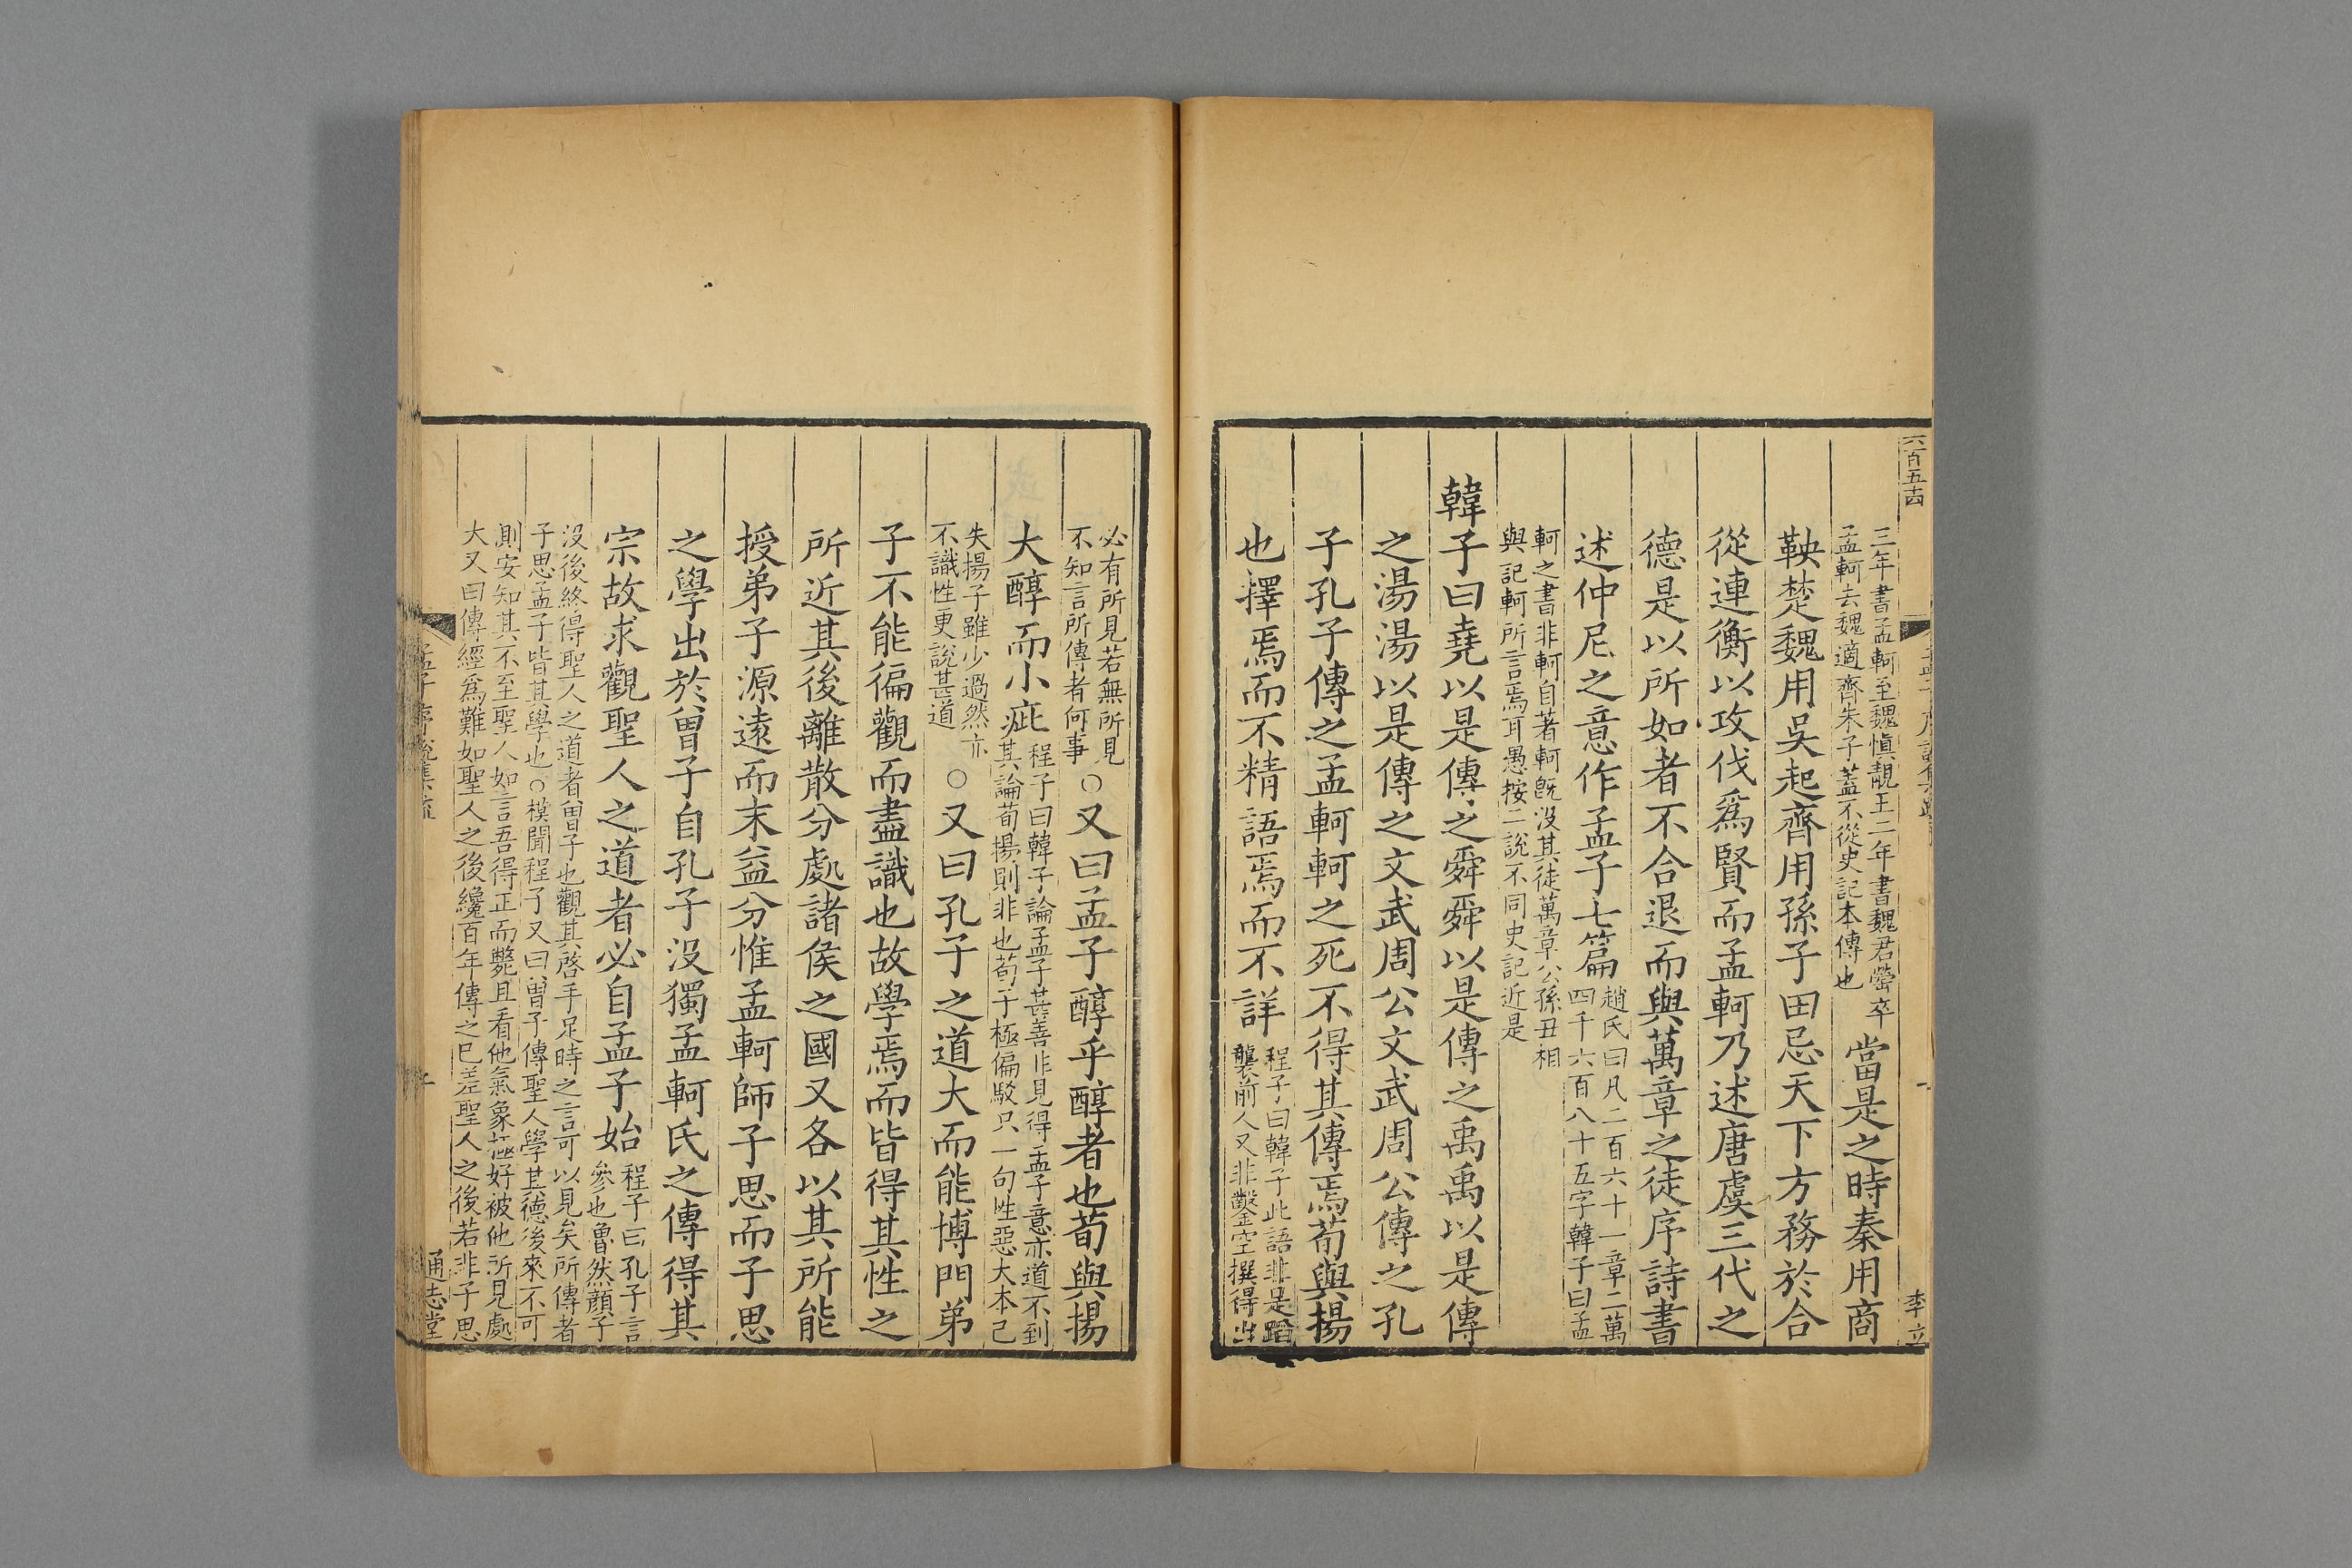 六百五十四
李立
三年書孟軻至魏愼靚王二年書魏君罃卒
孟軻去魏適齊朱子蓋不從史記本傳也
當是之時秦用商
鞅楚魏用吳起齊用孫子田忌天下方務於合
從連衡以攻伐爲賢而孟軻乃述唐虞三代之
德是以所如者不合退而與萬章之徒序詩書
述仲尼之意作孟子七篇
趙氏曰凡二百六十一章二萬
四千六百八十五字韓子曰孟
軻之書非軻自著軻旣沒其徒萬章公孫丑相
與記軻所言焉耳愚按二說不同史記近是
韓子曰堯以是傳之舜舜以是傳之禹禹以是傳
之湯湯以是傳之文武周公文武周公傳之孔
子孔子傳之孟軻軻之死不得其傳焉荀與揚
也擇焉而不精語焉而不詳
程子曰韓子此語非是蹈
襲前人又非鑿空撰得出
必有所見若無所見
不知言所傳者何事
○又曰孟子醇乎醇者也荀與揚
大醇而小疵
程子曰韓子論孟子甚善非見得孟子意亦道不到
其論荀揚則非也荀子極偏駁只一句性惡大本已
失揚子雖少過然亦
不識性更說甚道
○又曰孔子之道大而能博門弟
子不能徧觀而盡識也故學焉而皆得其性之
所近其後離散分處諸侯之國又各以其所能
授弟子源遠而末益分惟孟軻師子思而子思
之學出於曾子自孔子沒獨孟軻氏之傳得其
宗故求觀聖人之道者必自孟子始
程子曰孔子言
參也魯然顏子
沒後終得聖人之道者曾子也觀其啓手足時之言可以見矣所傳者
子思孟子皆其學也○模聞程子又曰曾子傳聖人學其德後來不可
測安知其不至聖人如言吾得正而斃且看他氣象極好被他所見處
大又曰傳經爲難如聖人之後纔百年傳之已差聖人之後若非子思
孟子序說集疏
通志堂